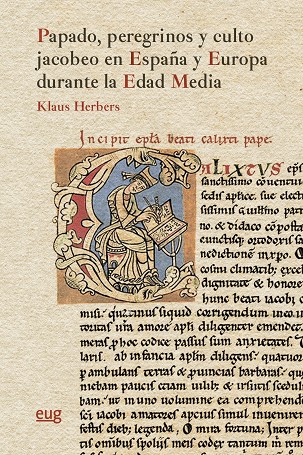 Papado, peregrinos y culto
jacobeo en España y Europa
durante la Edad Media
Klaus Herbers
Incipit epła beati calixti pape.
CALIXTVS ep̄s
sanctissimo conuentui
sedis aptice. sue electi
sissimis Guilłmo patri
& didaco cōposta
cunctisq; ortodoxis sa
benedictionē in x̄po.
cosmi climatib; excele
dignitate & honore
hunc beati iacobi c
misi. quatinus siquid corrigendum inco
toritas ura amore apłi diligenter emendet.
meras, p hoc codice passus sum anxietates.
ab infancia apłm diligens; quatuor
pambulans terras & puincias barbaras
niebam paucis
ut in uno uolumine ea comprehend
iacobi amatores apcius simul inuenirent
festiuis dieb; legenda. O mira fortuna;
tis omibus spoliis meis codex tantum
eug